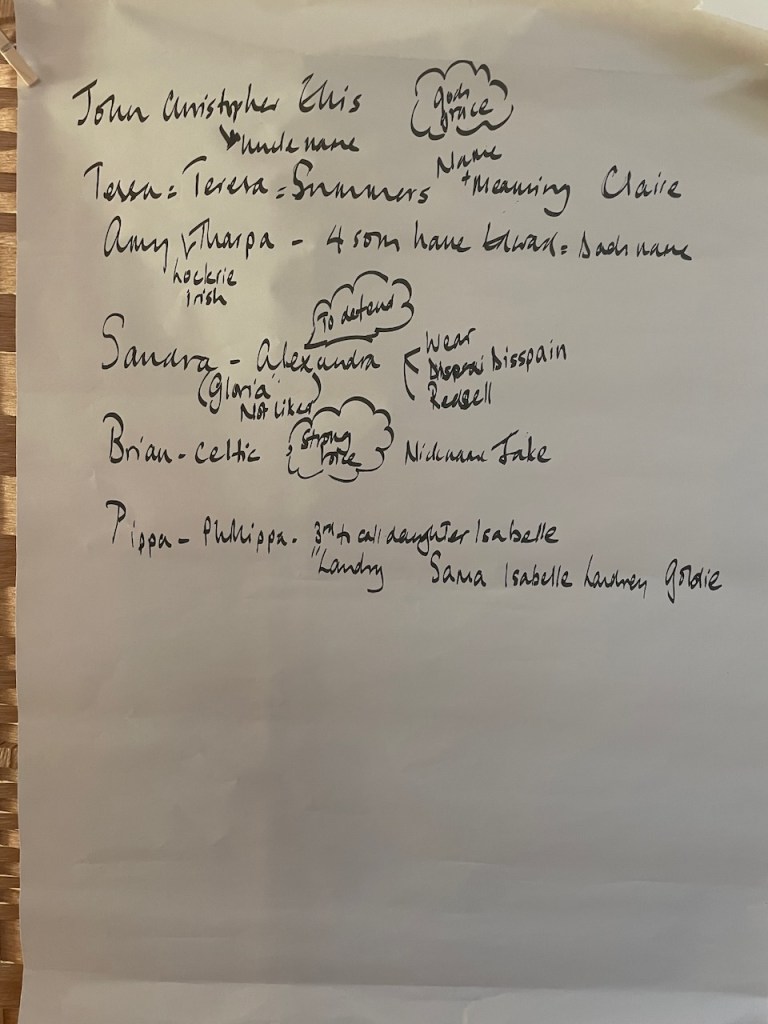 John Christopher Ellis
Gods
Grace
Uncle name
Name
+ Meaning
Tessa = Teresa = Summers
Claire
Amy Tharpa - 4 sons have Edward = Dads name
Irish
To defend
Sandra - Alexandra
Wear
Disspain
Redsell
(Gloria)
Not liked
Brian - Celtic
Strong
force
Nickname Jake
Pippa - Phillippa. 3rd to call daughter Isabelle
" Landry
Sama Isabelle Landrey Goldie